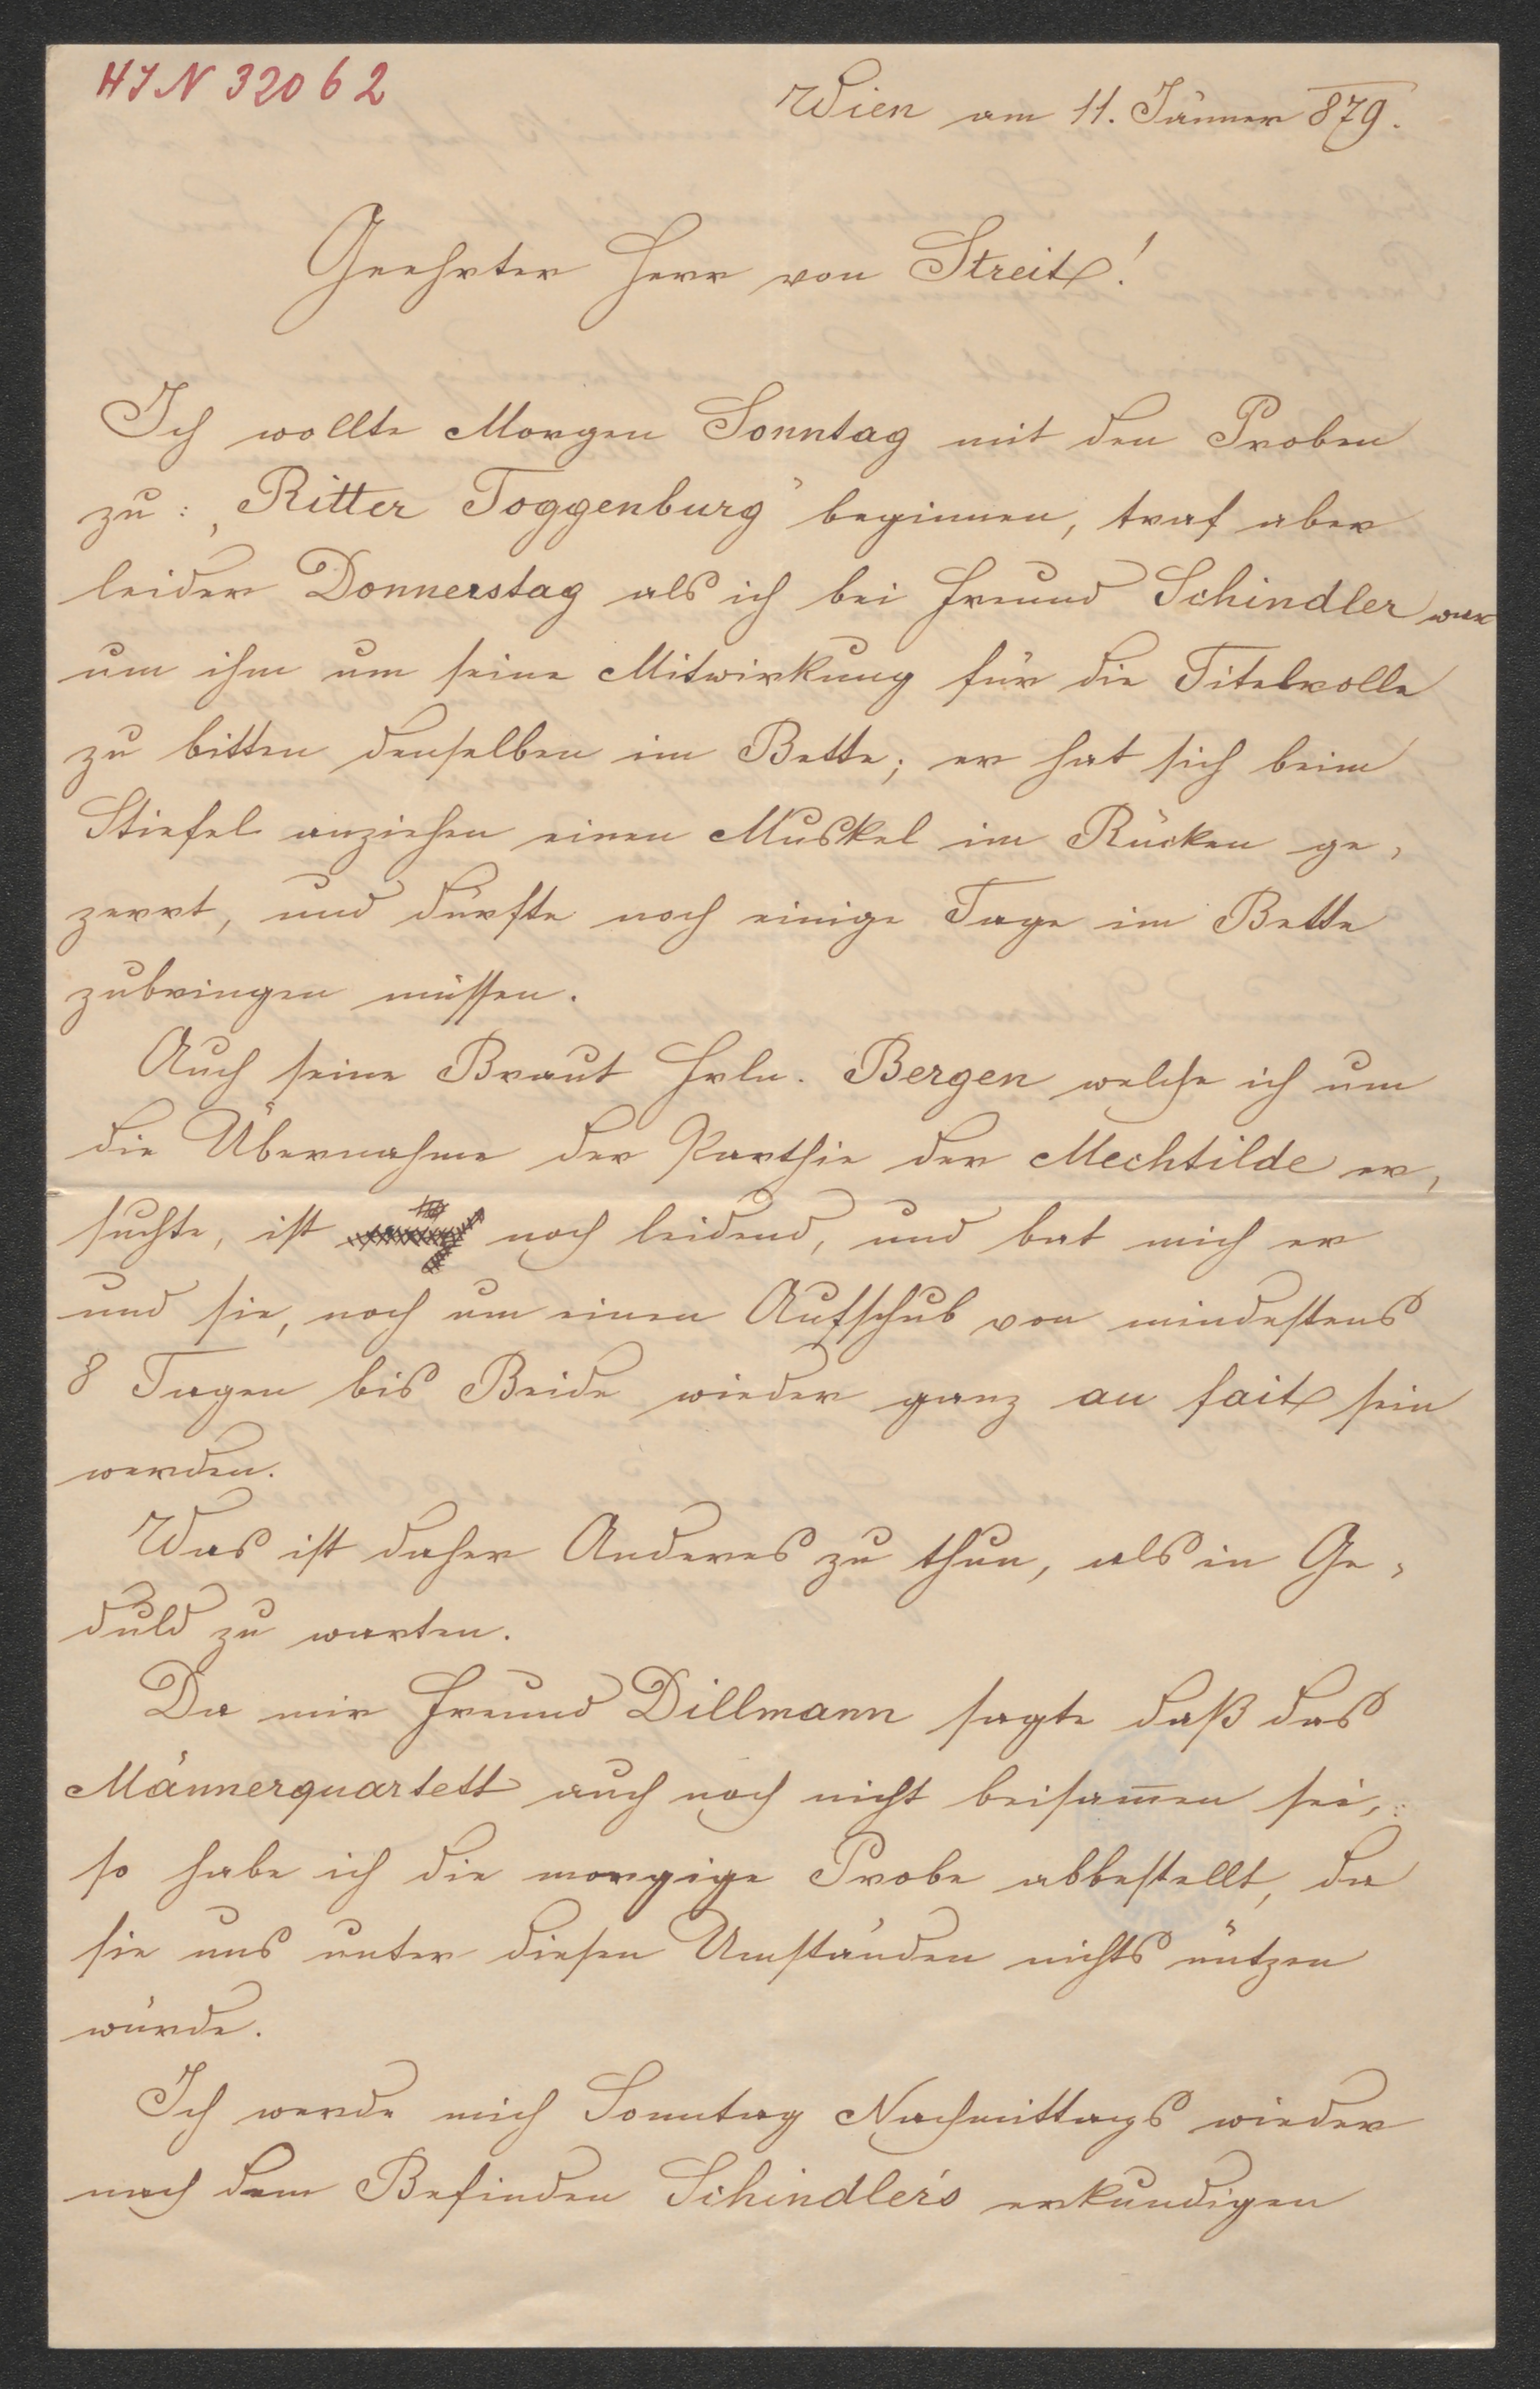 HIN 32062
Wien am 11. Jänner 879.
Geehrter Herr von Streit!
Ich wollte Morgen Sonntag mit den Proben
zu: „Ritter Toggenburg" beginnen, traf aber
leider Donnerstag als ich bei Freund Schindler war
um ihn um seine Mitwirkung für die Titelrolle
zu bitten denselben im Bette; er hat sich beim
Stiefel anziehen einen Muskel im Rücken ge-
zerrt, und dürfte noch einige Tage im Bette
zubringen müssen.
Auch seine Braut Frln. Bergen welche ich um
die Übernahme der Parthie der Mechtilde er-
suchte, ist noch leidend, und bat mich er
und sie, noch um einen Aufschub von mindestens
8 Tagen bis Beide wieder ganz au fait sein
werden.
Was ist daher Anderes zu thun, als in Ge-
duld zu warten.
Da mir Freund Dillmann sagte daß das
Männerquartett auch noch nicht beisam̅en sei,
so habe ich die morgige Probe abbestellt, da
sie uns unter diesen Umständen nichts nützen
würde.
Ich werde mich Sonntag Nachmittags wieder
nach dem Befinden Schindler's erkundigen